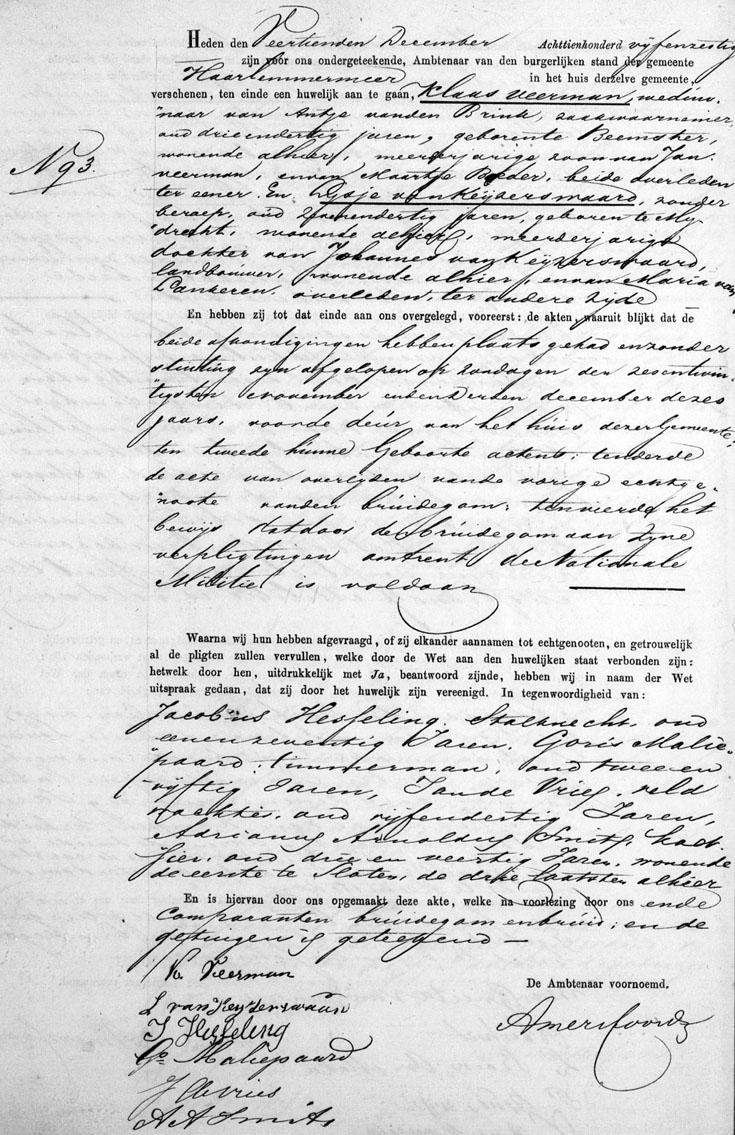 Heden den Veertienden December Achttienhonderd vijfenzestig
zijn voor ons ondergeteekende, Ambtenaar van den burgerlijken stand der gemeente
Haarlemmermeer in het huis derzelve gemeente,
verschenen, ten einde een huwelijk aan te gaan, Klaas Veerman, weduw-
"naar van Antje vanden Brink, zaakwaarnemer,
oud drieendertig jaren, geborente Beemster,
N 93.
wonende alhier, meerderjarige zoon van Jan
veerman, envan Maartje beide overleden
ter eener. En van Keyzerswaard, zonder
beroep, oud jaren, geboren te My
"drecht, wonende alhier, meerderjarige
dochter van Johannes van Keyzerswaard,
landbouwer, wonende alhier, envan Maria van
Dankeren, overleden, ter andere zijde
En hebben zij tot dat einde aan ons overgelegd, vooreerst: de akten, waaruit blijkt dat de
beide afkondigingen hebben plaats gehad enzonder
stuiting zyn afgelopen op zondagen den zesentwin-
"tigsten november enden derden december dezes
jaars, voorde deur van het huis dezer Gemeente;
ten tweede hunne Geboorte acten; tenderde
de acte van overlyden vande vorige echtge-
"noote vanden bruidegom; tenvierde het
bewijs datdoor den bruidegom aan zyne
verpligtingen omtrent de Nationale
Militie is voldaan
Waarna wij hun hebben afgevraagd, of zij elkander aannamen tot echtgenooten, en getrouwelijk
al de pligten zullen vervullen, welke door de Wet aan den huwelijken staat verbonden zijn:
hetwelk door hen, uitdrukkelijk met Ja, beantwoord zijnde, hebben wij in naam der Wet
uitspraak gedaan, dat zij door het huwelijk zijn vereenigd. In tegenwoordigheid van:
Jacobus Hesseling, Stalknecht, oud
eenenzeventig Jaren, Goris Malie-
"paard, timmerman, oud twee en
vyftig Jaren, Jande Vries, veld
wachter, oud vijfendertig Jaren,
Adrianus Arnoldus Smits,
oud drie en veertig Jaren, wonende
de eerste te Sloten, de drie laatsten alhier
En is hiervan door ons opgemaakt deze akte, welke na voorlezing door ons ende
Comparanten bruidegom enbruid, en de
getuigen is geteekend —
Veerman
De Ambtenaar voornoemd.
van Keyzerswaard
J Hesseling
Amersfoordt
Gs Maliepaard
J de vries
A A Smits